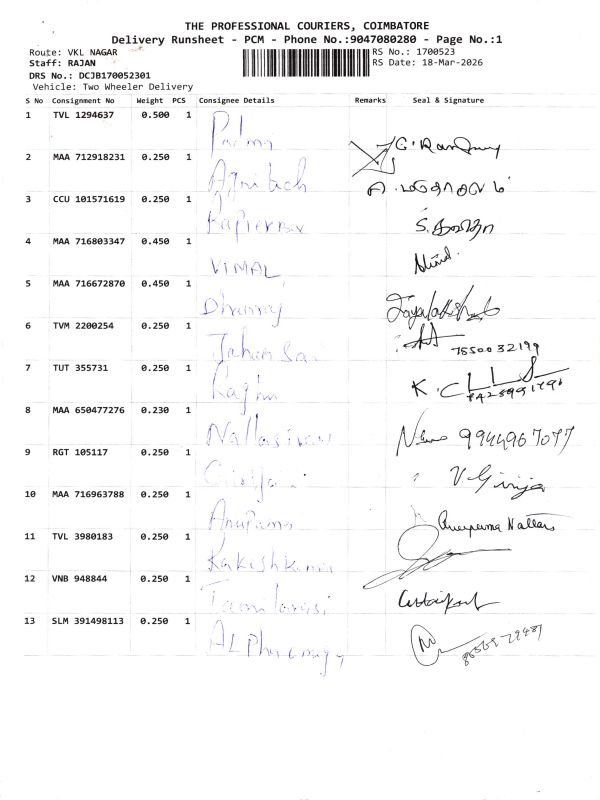 THE PROFESSIONAL COURIERS, COIMBATORE
Delivery Runsheet - PCM - Phone No.:9047080280 - Page No.:1
Route: VKL NAGAR RS No.: 1700523
Staff: RAJAN RS Date: 18-Mar-2026
DRS No.: DCJB170052301
Vehicle: Two Wheeler Delivery
S No Consignment No Weight PCS Consignee Details Remarks Seal & Signature
1 TVL 1294637 0.500 1 Padma
2 MAA 712918231 0.250 1 Agnitech
3 CCU 101571619 0.250 1
4 MAA 716803347 0.450 1 VIMAL
5 MAA 716672870 0.450 1 Dhanraj
6 TVM 2200254 0.250 1 7550032199
7 TUT 355731 0.250 1 Raghu
8 MAA 650477276 0.230 1 Nallasivan 9944967077
9 RGT 105117 0.250 1 V. Girija
10 MAA 716963788 0.250 1 Anupama Anupama Nallari
11 TVL 3980183 0.250 1
12 VNB 948844 0.250 1 Tamilarasi
13 SLM 391498113 0.250 1